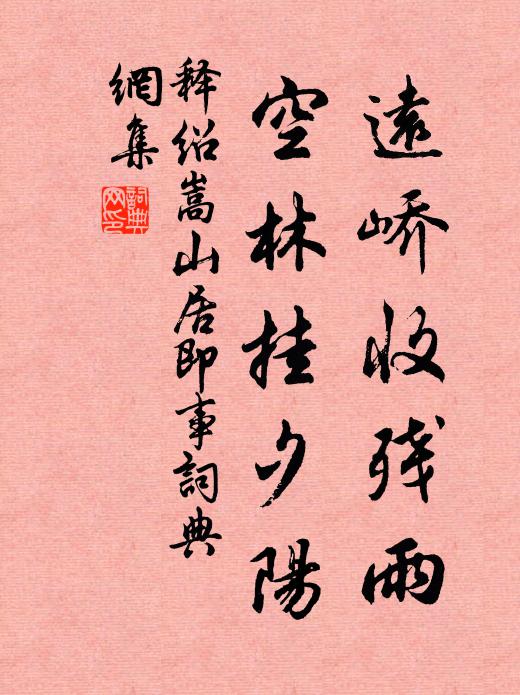 遠嶠收残雨
空林挂夕陽
释绍嵩山居即事詞典
網集
詞典
网印